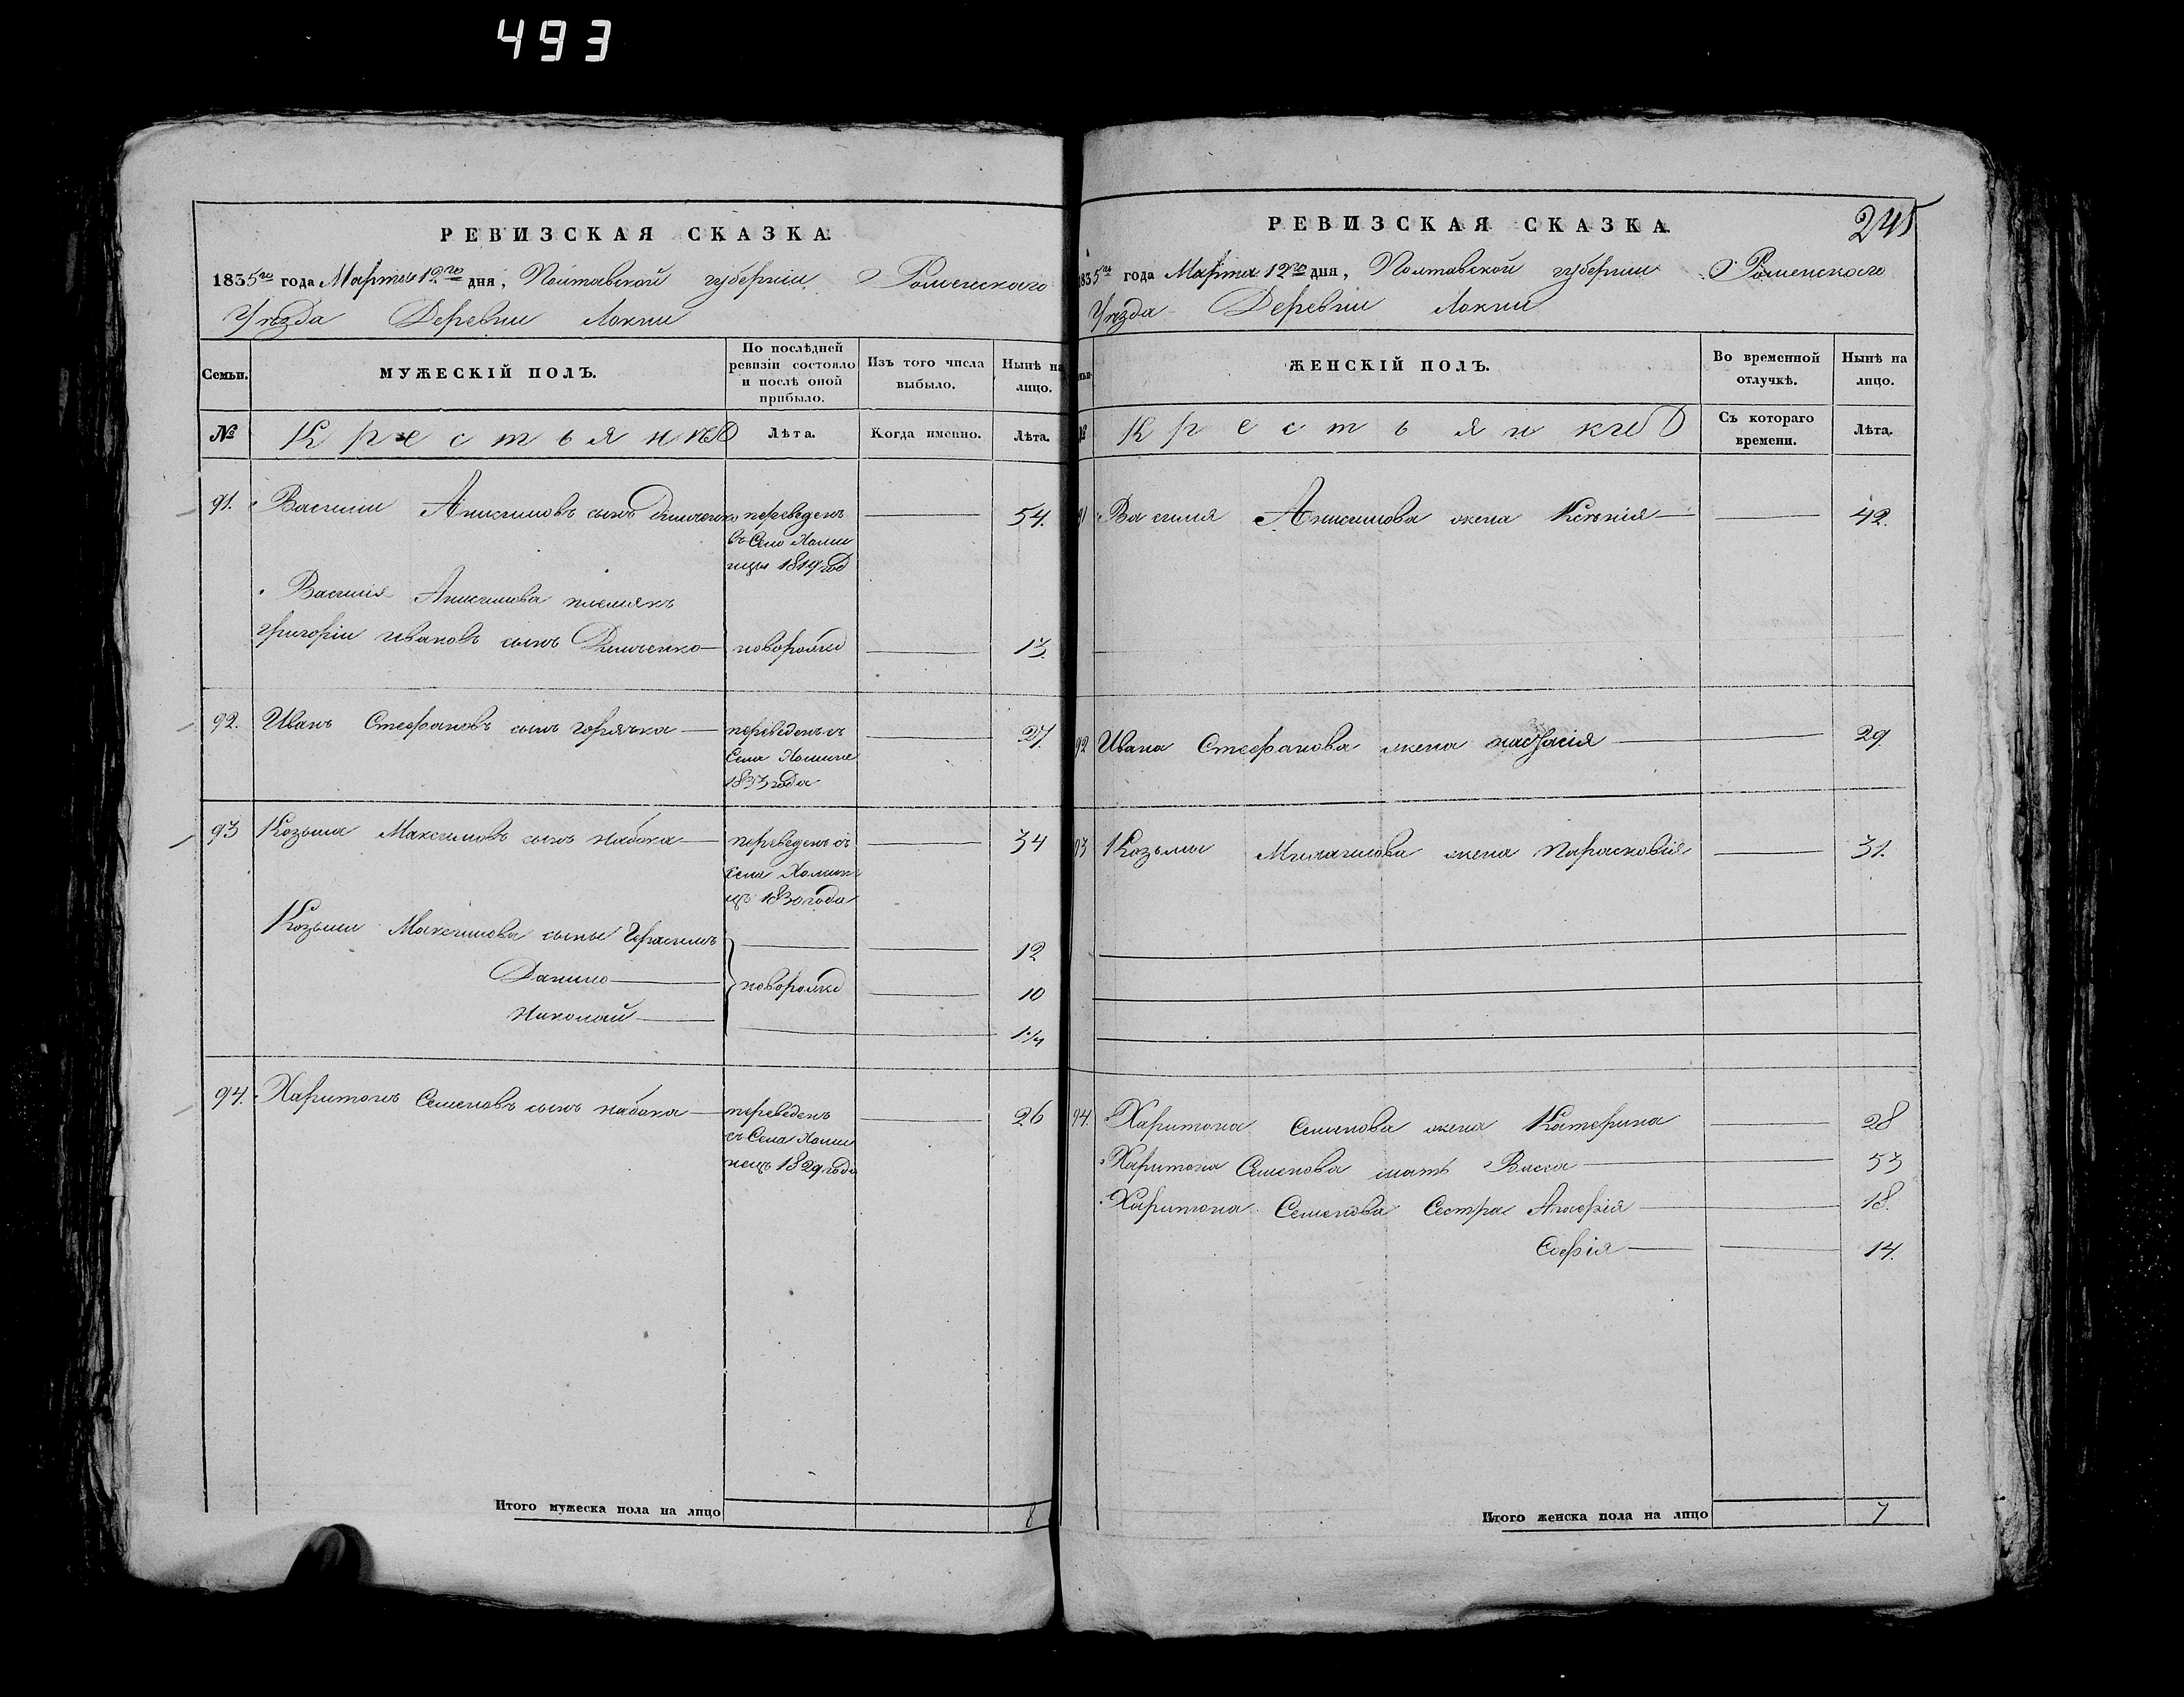 493
РЕВИЗСКАЯ СКАЗКА.
1835го года Марта 12го дня, Полтавской губернии Роменскаго
Уезда Деревни Локни
Семьи.
МУЖЕСКІЙ ПОЛЪ.
По послѣдней ревизіи состояло и послѣ оной прибыло.
Изъ того числа выбыло.
Нынѣ на лицо.
№
Крестьяне
Лѣта.
Когда именно.
Лѣта.
91. Василий Анисимовъ сынъ переведенъ 54.
1819 год
Василия Анисимова племякъ
Григорій Ивановъ сынъ новорожде 13.
92. Иванъ Стефановъ сынъ Горячка переведенъ съ 27.
Села
1833 года
93 Козьма Максимовъ сынъ Набока переведенъ съ 34
села
1830 года
Козьми Максимова сыны Герасимъ 12
Данило новорожде 10
Николай 1 1/4
94. Харитонъ Семеновъ сынъ Набока переведенъ 26
съ Села
нецъ 1829 года
Итого мужеска пола на лицо 8
РЕВИЗСКАЯ СКАЗКА.
245
1835го года Марта 12го дня, Полтавской губернии Роменскаго
Уезда Деревни Локни
ЖЕНСКІЙ ПОЛЪ.
Во временной отлучкѣ.
Нынѣ на лицо.
№
Крестьянки
Съ котораго времени.
Лѣта.
91 Василия Анисимова жена Ксѣнія 42.
92 Ивана Стефанова жена Настасія 29.
93 Козьмы жена Парасковія 31.
94. Харитона Семенова жена Катерина 28
Харитона Семенова мать Васса 53
Харитона Семенова Сестра Агафія 18.
Софія 14.
Итого женска пола на лицо 7